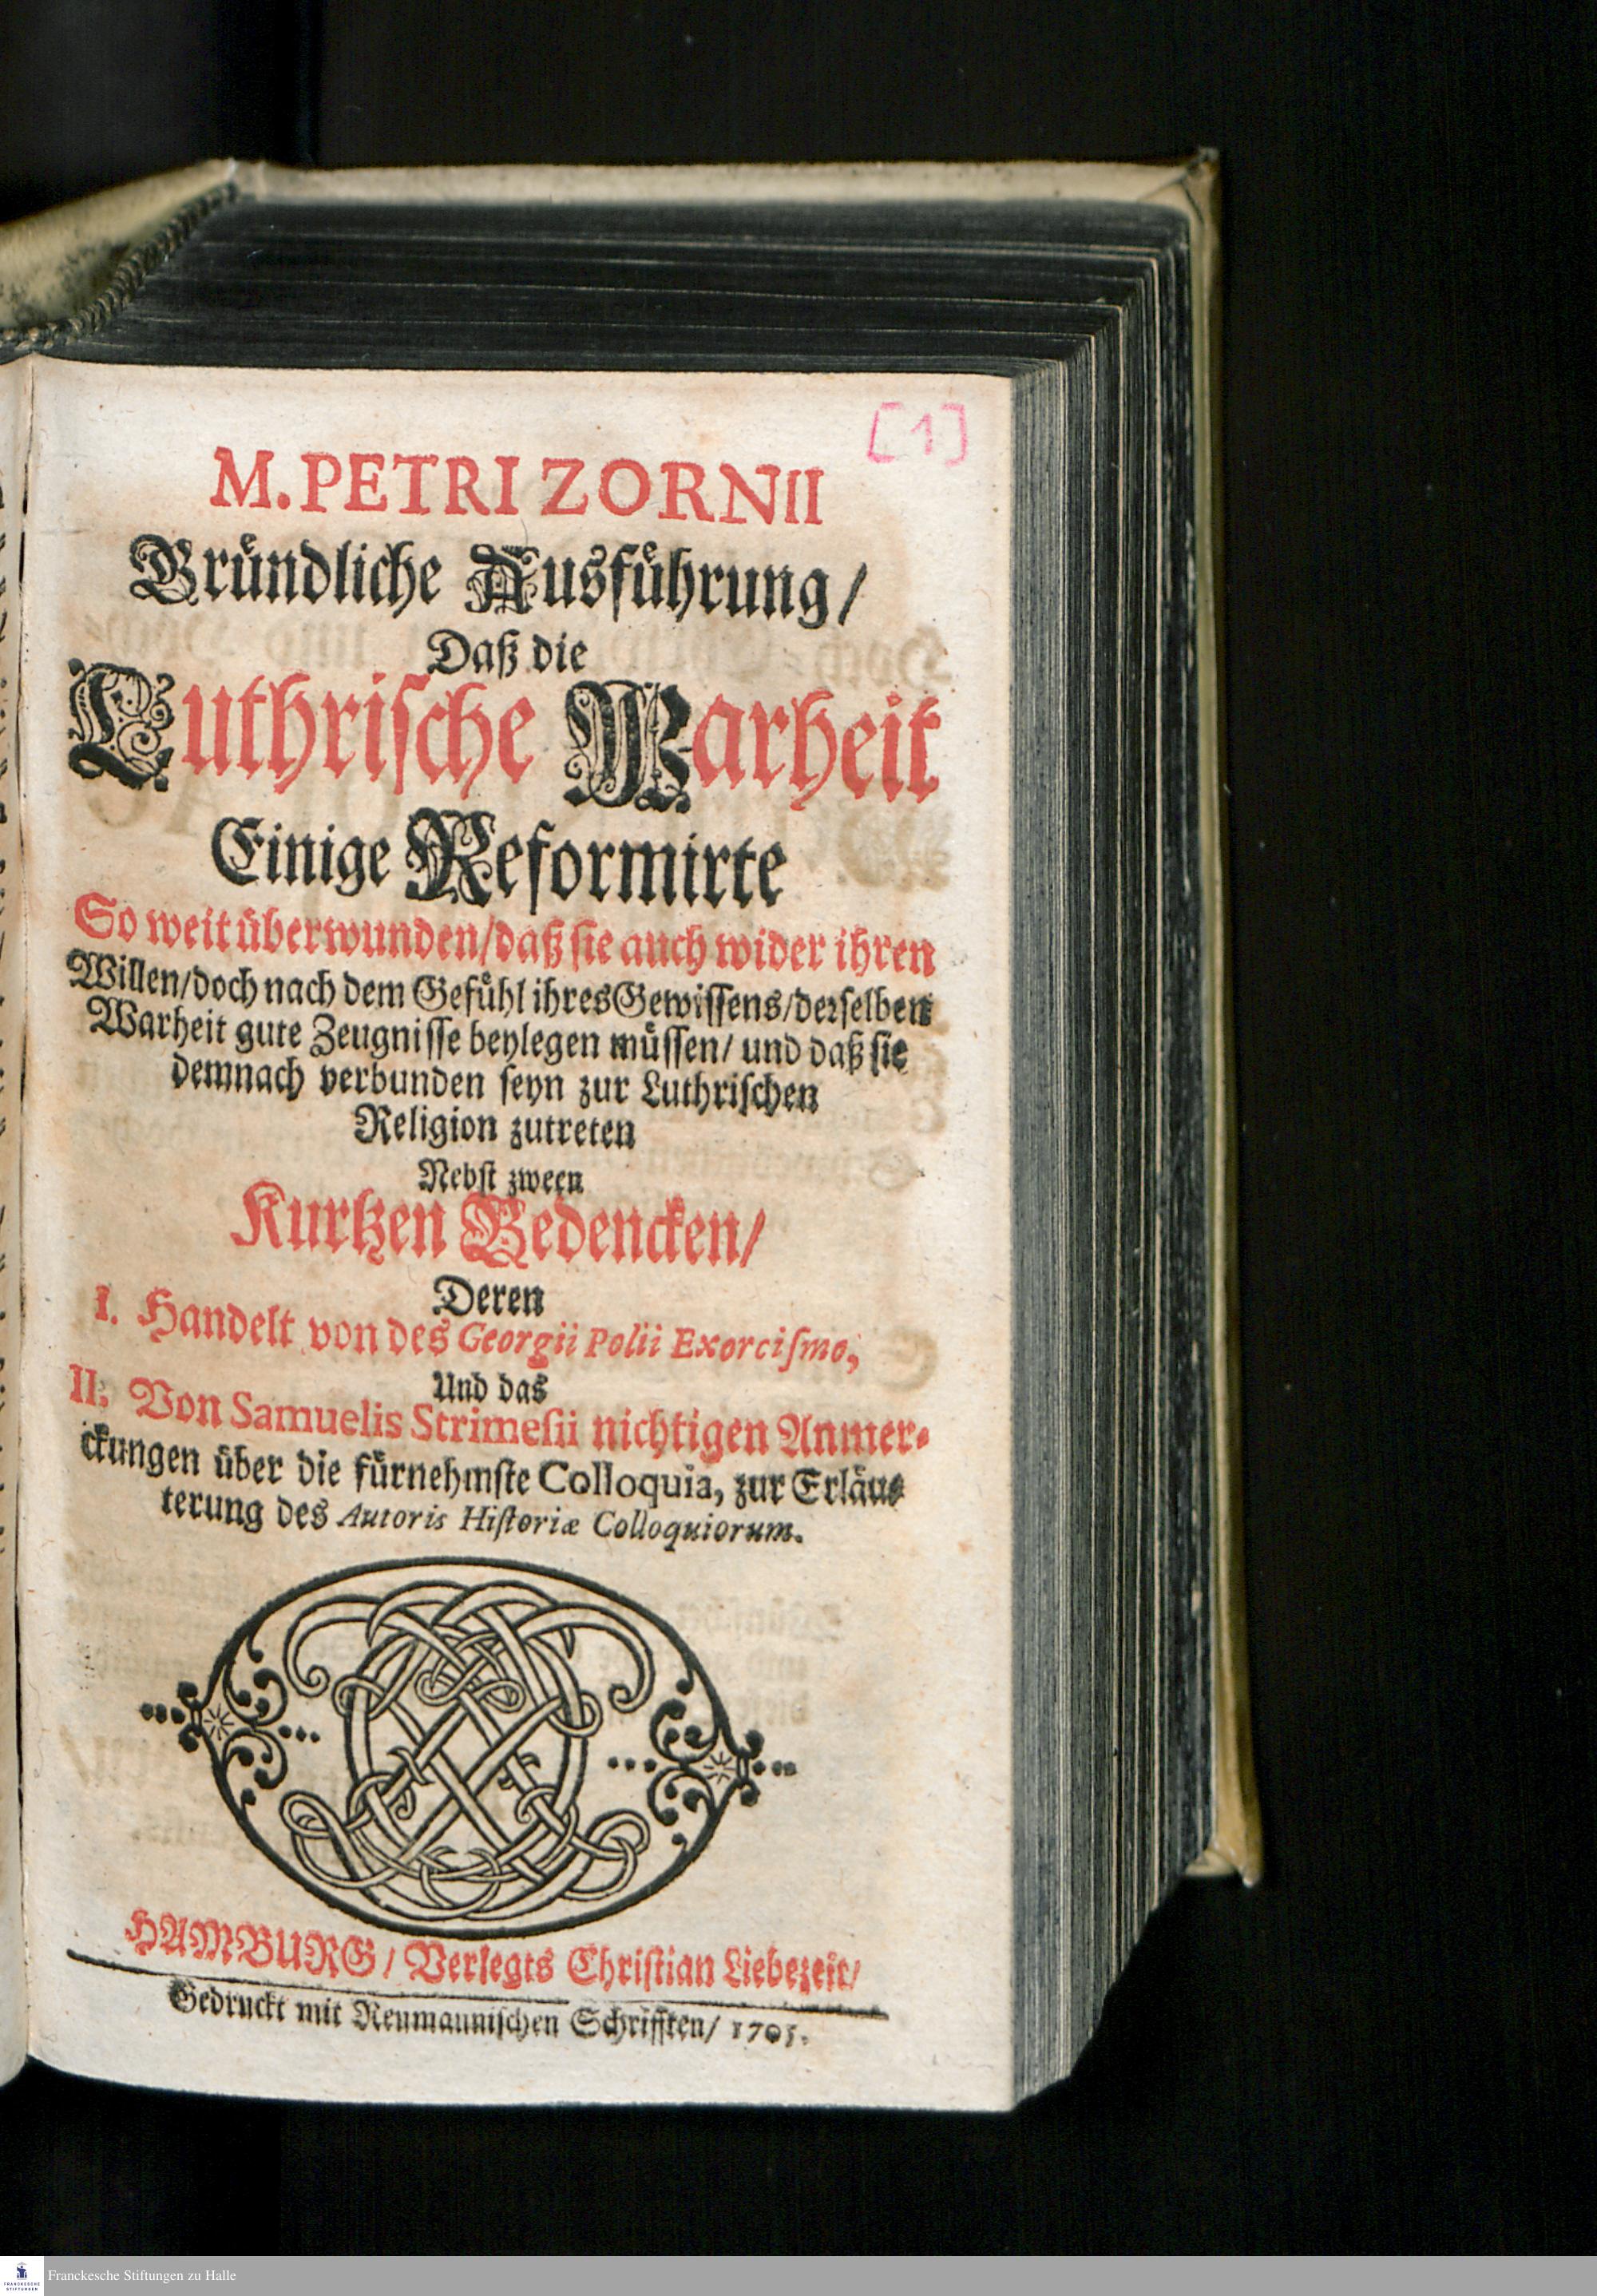 [1]
M. PETRI ZORNII
Gründliche Ausführung/
Daß die
Luthrische Warheit
Einige Reformirte
So weit überwunden/daß sie auch wider ihren
Willen/doch nach dem Gefühl ihres Gewissens/derselben
Warheit gute Zeugnisse beylegen müssen/ und daß sie
demnach verbunden seyn zur Luthrischen
Religion zutreten
Nebst zween
Kurtzen Bedencken/
Deren
I. Handelt von des Georgii Polii Exorcismo,
Und das
II. Von Samuelis Strimesii nichtigen Anmer-
ckungen über die fürnehmste Colloquia, zur Erläu-
terung des Autoris Historiæ Colloquiorum.
HAMBURG/ Verlegts Christian Liebezeit/
Gedruckt mit Neumannischen Schrifften/ 1705.
FRANCKESCHE
STIFTUNGEN
Franckesche Stiftungen zu Halle